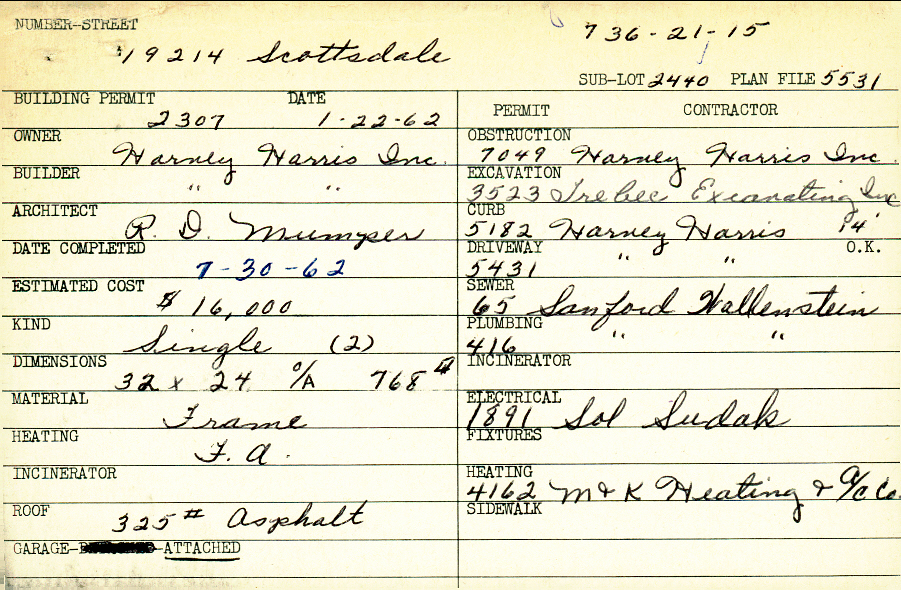 NUMBER-STREET
19214 Scottsdale
736-21-15
SUB-LOT 2440 PLAN FILE 5531
BUILDING PERMIT DATE
2307 1-22-62
OWNER
Harvey Harris Inc.
BUILDER
" "
ARCHITECT
R. D. Mumper
DATE COMPLETED
7-30-62
ESTIMATED COST
$ 16,000
KIND
Single (2)
DIMENSIONS
32 x 24 O/A 768
MATERIAL
Frame
HEATING
F. A.
INCINERATOR
ROOF
325# Asphalt
GARAGE- -ATTACHED
PERMIT CONTRACTOR
OBSTRUCTION
7049 Harvey Harris Inc.
EXCAVATION
3523 Trebec Excavating Inc
CURB
5182 Harvey Harris 14'
DRIVEWAY O.K.
5431 " "
SEWER
65 Sanford Wallenstein
PLUMBING
416 " "
INCINERATOR
ELECTRICAL
1891 Sol Sudak
FIXTURES
HEATING
4162 M & K Heating & A/C Co.
SIDEWALK